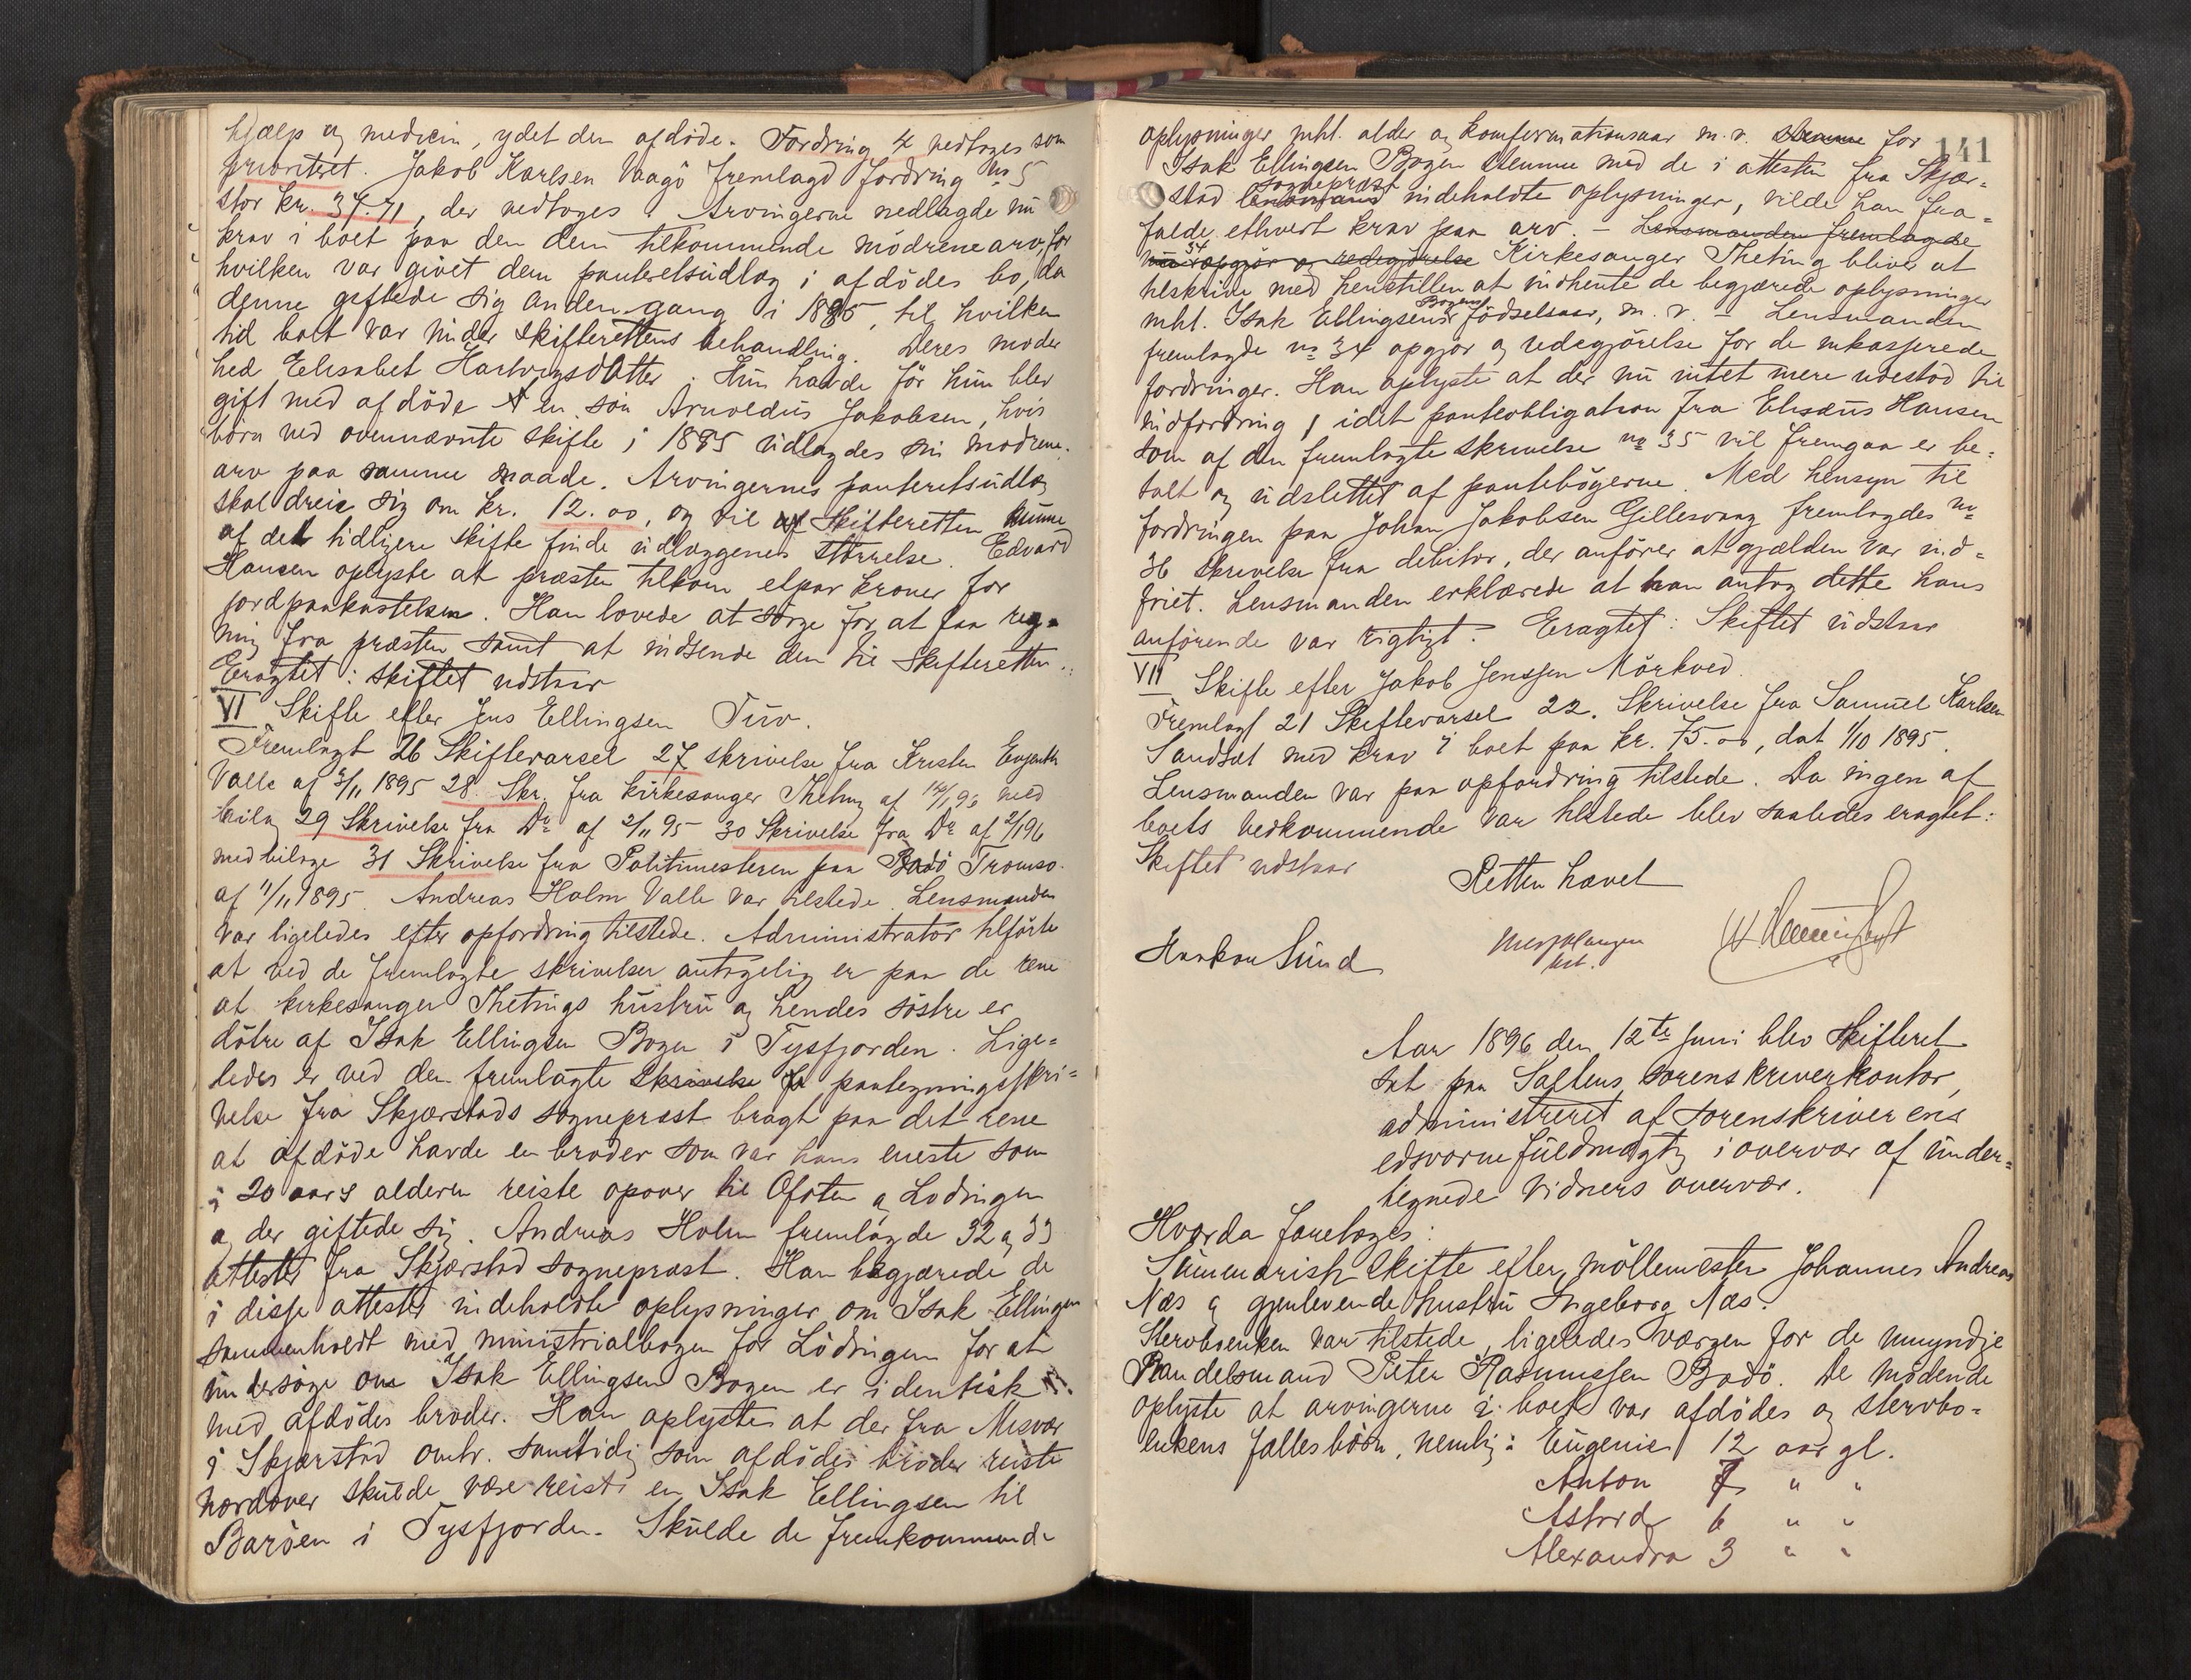 hjælp og medicin, ydet den afdöde. Fordring 4 vedtoges som
prioritet. Jakob Karlsen Vaagö fremlagd fordring No 5
stor kr. 37.71, der vedtoges. Arvingerne nedlagde nu
krav i boet paa den dem tilkommende mödrenearv, for
hvilken var givet dem panteretsudlæg i afdödes bo, da
denne giftede sig anden gang i 1885, til hvilken
tid boet var under skifterettens behandling. Deres moder
hed Elisabet Hartvigsdatter. Hun havde för hun blev
gift med afdöde en sön Arnoldus Jakobsen, hvis
börn ved ovennævnte skifte i 1885 udlagdes sin mödrene-
arv paa samme maade. Arvingernes panteretsudlæg
skal dreie sig om kr. 12.00, og vil skifteretten kunne
af det tidligere skifte finde udlæggenes störrelse. Edvard
Hansen oplyste at præsten tilkom etpar kroner for
jordpaakastelsen. Han lovede at sörge for at faa reg-
ning fra præsten samt at indsende den til skifteretten.
Eragtet: skiftet udstaar
VI Skifte efter Jens Ellingsen Tuv.
Fremlagt 26 Skiftevarsel 27 skrivelse fra Kristen Engenth
Valle af 3/11 1895 28. Skr. fra kirkesanger Theting af 14/1 96 med
bilag 29 Skrivelse fra Do af 2/11 95 30 Skrivelse fra Do af 2/1 96
med bilage 31 Skrivelse fra Politimesteren paa Bodö Tromsö
af 11/11 1895. Andreas Holm Valle var tilstede. Lensmanden
var ligeledes efter opfordring tilstede. Administrator tilförte
at ved de fremlagte skrivelser antagelig er paa de rene
at kirkesanger Thetings hustru og hendes söstre er
dötre af Isak Ellingsen Bogen i Tysfjorden. Lige-
ledes er ved den fremlagte skrivelse fr paategningsskri-
velse fra Skjærstads sogneprest bragt paa det rene
at afdöde havde en broder som var hans eneste som
i 20 aars alderen reiste opover til Ofoten og Lödingen
og der giftede sig. Andreas Holm fremlagde 32 og 33
attester fra Skjærstad sogneprest. Han begjærede de
i disse attester indeholdte oplysninger om Isak Ellingsen
sammenholdt med ministrialbogen for Lödingen for at
undersöge om Isak Ellingsen Bogen er identisk
med afdödes broder. Han oplyste at der fra Misvær
i Skjærstad omtr. samtidig som afdödes broder reiste
nordover skulde være reist en Isak Ellingsen til
Baröen i Tysfjorden. Skulde de fremkommende
141
oplysninger mht. alder og konfirmationsaar m.v. stemme for
Isak Ellingsen Bogen stemme med de i attesten fra Skjær-
sognepræst
stad indeholdte oplysninger, vilde han fra-
falde ethvert krav paa arv. – Lensmanden fremlagde
34
nu opgjör og redegjörelse Kirkesanger Theting bliver at
tilskrive med henstillen at indhente de begjærede oplysninger
Bogens
mht. Isak Ellingsens födselsaar, m.v. – Lensmanden
fremlagde no 34 opgjör og redegjörelse for de inkasserede
fordringer. Han oplyste at der nu intet mere udestod til
indfordring, idet panteobligation fra Elisæus Hansen
som af den fremlagte skrivelse no 35 vil fremgaa er be-
talt og udslettet af pantebögerne. Med hensyn til
fordringen paa Johan Jakobsen Gillesvaag fremlagdes no
36 skrivelse fra debitor, der anförer at gjælden var ind-
friet. Lensmanden erklærede at han antog dette hans
anförende var rigtigt. Eragtet: Skiftet udstaar
VII Skifte efter Jakob Jenssen Mörkved.
Fremlagt 21 Skiftevarsel 22. Skrivelse fra Samuel Karlsen
Sandsæt med krav i boet paa kr. 75.00, dat 1/10 1895.
Lensmanden var paa opfordring tilstede. Da ingen af
boets vedkommende var tilstede blev saaledes eragtet:
Skiftet udstaar
Retten hævet
Haakon Sund
Aar 1896 den 12te Juni blev skifteret
sat paa Saltens sorenskriverkontor,
administreret af sorenskriverens
edsvorne fuldmægtig i overvær af under-
tegnede vidners overvær.
Hvorda foretoges:
Summarisk skifte efter möllemester Johannes Andreas
Næs og gjenlevende hustru Ingeborg Næs.
Stervboenken var tilstede, ligeledes værgen for de umyndige
Handelsmand Peter Rasmussen Bodö. De mödende
oplyste at arvingerne i boet var afdödes og stervbo-
enkens fællesbörn, nemlig: Eugenie 12 aar gl.
Anton 7 " "
Astrid 6 " "
Alexandra 3 " "